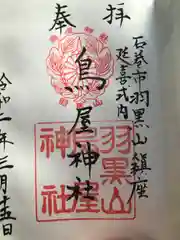 奉拝
石巻市羽黒山鎮座
延喜式内
鳥屋神社
羽黒山
鳥屋
神社
令和二年三月十五日